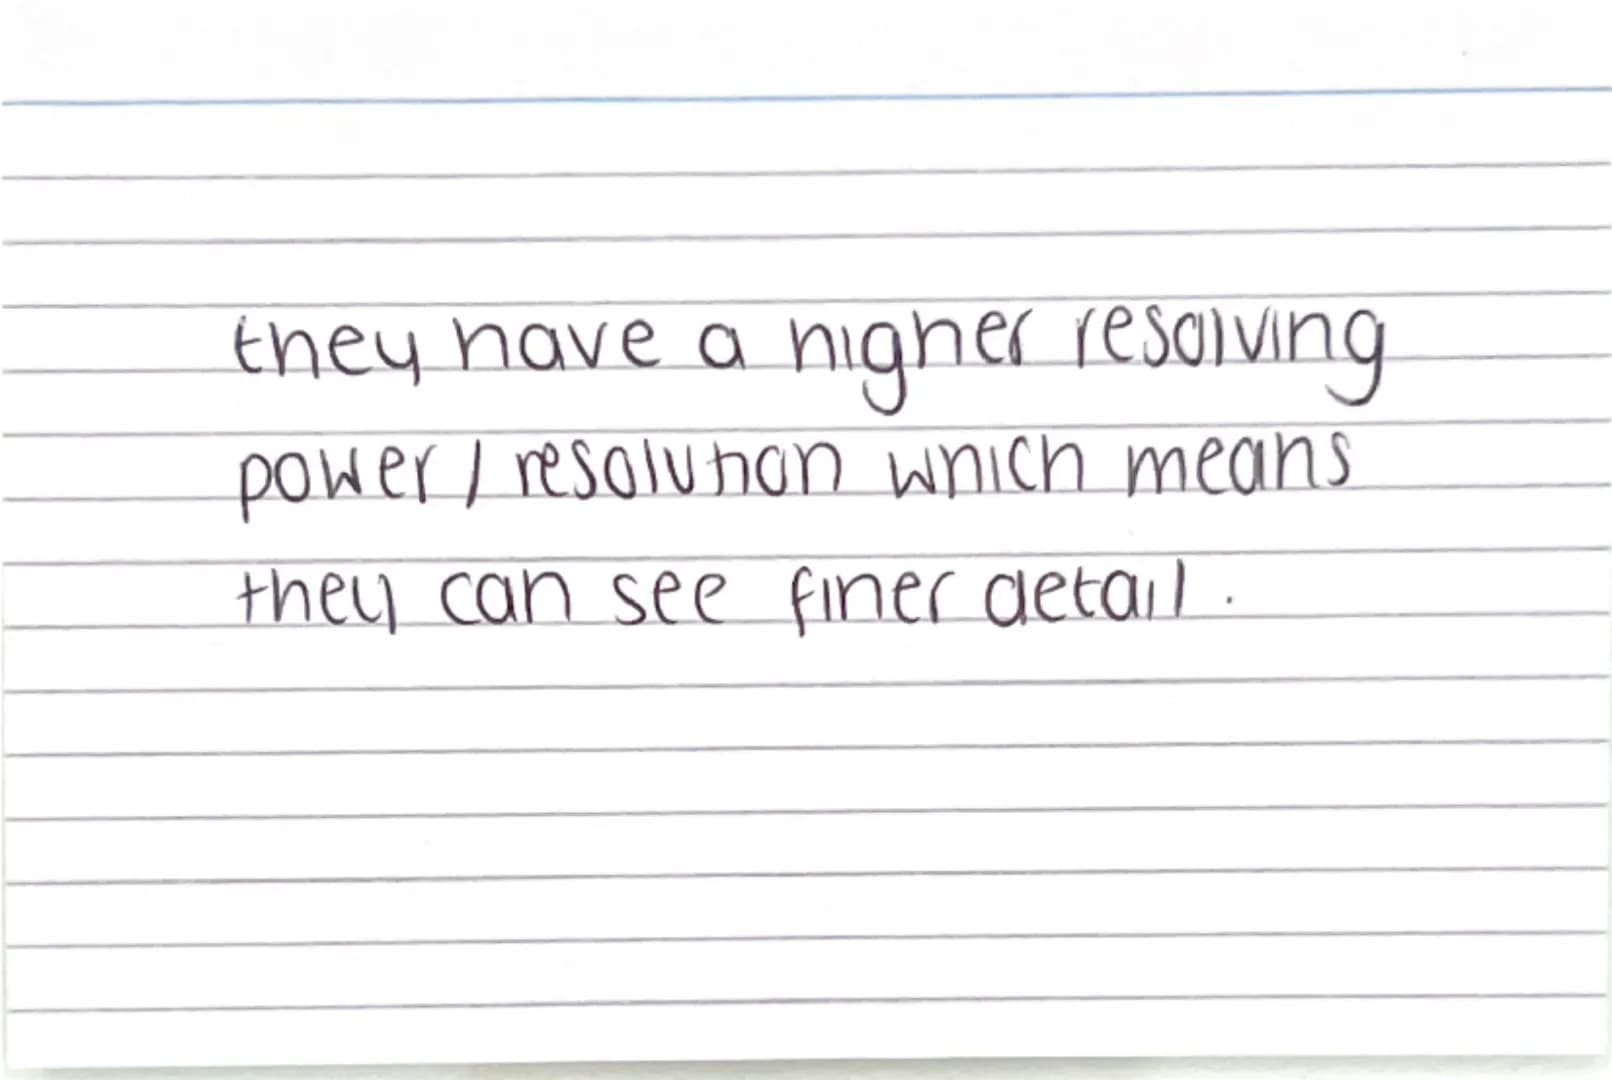 they have a higher resolving
power / resolution which means
they can see finer detail.